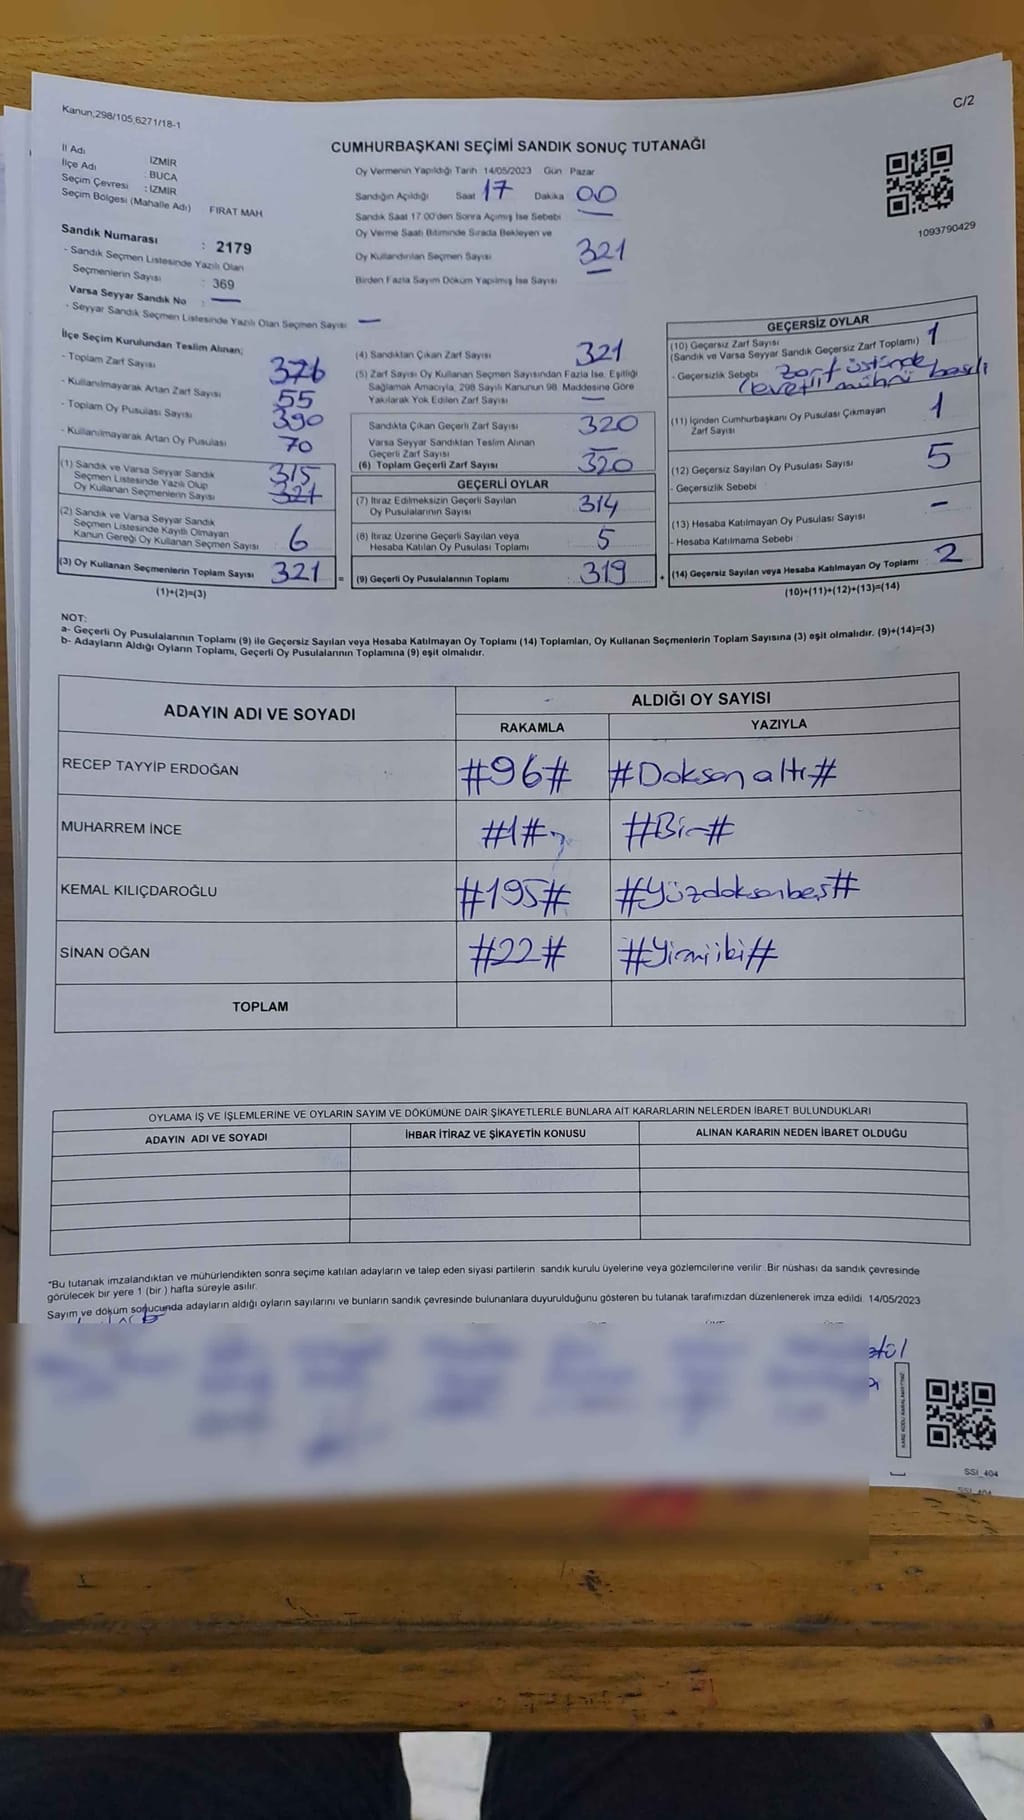 Kanun;298/105,6271/18-1
C/2
CUMHURBAŞKANI SEÇİMİ SANDIK SONUÇ TUTANAĞI
İl Adı İZMİR
İlçe Adı : BUCA
Seçim Çevresi : İZMİR
Seçim Bölgesi (Mahalle Adı) FIRAT MAH
Sandık Numarası : 2179
- Sandık Seçmen Listesinde Yazılı Olan
Seçmenlerin Sayısı : 369
Varsa Seyyar Sandık No : —
- Seyyar Sandık Seçmen Listesinde Yazılı Olan Seçmen Sayısı —
Oy Vermenin Yapıldığı Tarih 14/05/2023 Gün Pazar
Sandığın Açıldığı Saat 17 Dakika 00
Sandık Saat 17.00'den Sonra Açımış İse Sebebi —
Oy Verme Saati Bitiminde Sırada Bekleyen ve
Oy Kullandırılan Seçmen Sayısı 321
Birden Fazla Sayım Döküm Yapılmış İse Sayısı —
1093790429
İlçe Seçim Kurulundan Teslim Alınan;
- Toplam Zarf Sayısı 376
- Kullanılmayarak Artan Zarf Sayısı 55
- Toplam Oy Pusulası Sayısı 390
- Kullanılmayarak Artan Oy Pusulası 70
(1) Sandık ve Varsa Seyyar Sandık
Seçmen Listesinde Yazılı Olup
Oy Kullanan Seçmenlerin Sayısı 315
321
(2) Sandık ve Varsa Seyyar Sandık
Seçmen Listesinde Kayıtlı Olmayan
Kanun Gereği Oy Kullanan Seçmen Sayısı 6
(3) Oy Kullanan Seçmenlerin Toplam Sayısı 321 =
(1)+(2)=(3)
(4) Sandıktan Çıkan Zarf Sayısı 321
(5) Zarf Sayısı Oy Kullanan Seçmen Sayısından Fazla İse, Eşitliği
Sağlamak Amacıyla, 298 Sayılı Kanunun 98. Maddesine Göre
Yakılarak Yok Edilen Zarf Sayısı —
Sandıkta Çıkan Geçerli Zarf Sayısı 320
Varsa Seyyar Sandıktan Teslim Alınan
Geçerli Zarf Sayısı —
(6) Toplam Geçerli Zarf Sayısı 320
GEÇERLİ OYLAR
(7) İtiraz Edilmeksizin Geçerli Sayılan
Oy Pusulalarının Sayısı 314
(8) İtiraz Üzerine Geçerli Sayılan veya
Hesaba Katılan Oy Pusulası Toplamı 5
(9) Geçerli Oy Pusulalarının Toplamı : 319 +
GEÇERSİZ OYLAR
(10) Geçersiz Zarf Sayısı
(Sandık ve Varsa Seyyar Sandık Geçersiz Zarf Toplamı) 1
- Geçersizlik Sebebi zarf üstünde
(evet) mührü basılı
(11) İçinden Cumhurbaşkanı Oy Pusulası Çıkmayan
Zarf Sayısı 1
(12) Geçersiz Sayılan Oy Pusulası Sayısı 5
- Geçersizlik Sebebi
(13) Hesaba Katılmayan Oy Pusulası Sayısı -
- Hesaba Katılmama Sebebi
(14) Geçersiz Sayılan veya Hesaba Katılmayan Oy Toplamı : 2
(10)+(11)+(12)+(13)=(14)
NOT:
a- Geçerli Oy Pusulalarının Toplamı (9) ile Geçersiz Sayılan veya Hesaba Katılmayan Oy Toplamı (14) Toplamları, Oy Kullanan Seçmenlerin Toplam Sayısına (3) eşit olmalıdır. (9)+(14)=(3)
b- Adayların Aldığı Oyların Toplamı, Geçerli Oy Pusulalarının Toplamına (9) eşit olmalıdır.
ADAYIN ADI VE SOYADI ALDIĞI OY SAYISI
RAKAMLA YAZIYLA
RECEP TAYYİP ERDOĞAN #96# #Doksan altı#
MUHARREM İNCE #1# #Bir#
KEMAL KILIÇDAROĞLU #195# #Yüzdoksanbeş#
SİNAN OĞAN #22# #Yirmiiki#
TOPLAM
OYLAMA İŞ VE İŞLEMLERİNE VE OYLARIN SAYIM VE DÖKÜMÜNE DAİR ŞİKAYETLERLE BUNLARA AİT KARARLARIN NELERDEN İBARET BULUNDUKLARI
ADAYIN ADI VE SOYADI İHBAR İTİRAZ VE ŞİKAYETİN KONUSU ALINAN KARARIN NEDEN İBARET OLDUĞU
"Bu tutanak imzalandıktan ve mühürlendikten sonra seçime katılan adayların ve talep eden siyasi partilerin sandık kurulu üyelerine veya gözlemcilerine verilir. Bir nüshası da sandık çevresinde
görülecek bir yere 1 (bir ) hafta süreyle asılır.
Sayım ve döküm sonucunda adayların aldığı oyların sayılarını ve bunların sandık çevresinde bulunanlara duyurulduğunu gösteren bu tutanak tarafımızdan düzenlenerek imza edildi 14/05/2023
SSI_404
SSI_404